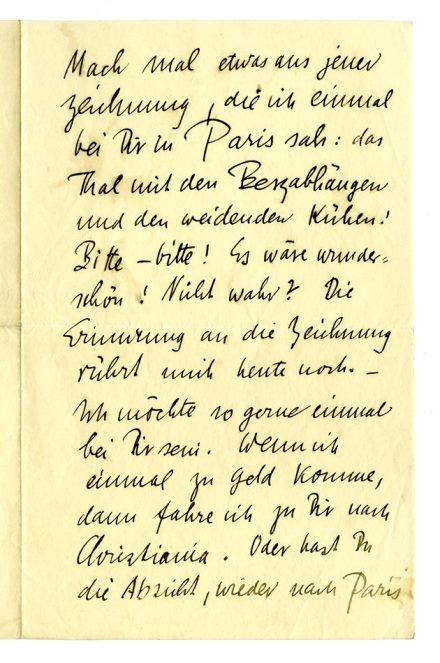 Mach mal etwas aus jener
Zeichnung, die ich einmal
bei Dir in Paris sah: das
Thal mit den Bergabhängen
und den weidenden Kühen!
Bitte – bitte! Es wäre wunder=
schön! Nicht wahr? Die
Erinnerung an die Zeichnung
rührt mich heute noch. –
Ich möchte so gerne einmal
bei Dir sein. Wenn ich
einmal zu Geld komme,
dann fahre ich zu Dir nach
Christiania. Oder hast Du
die Absicht, wieder nach Paris